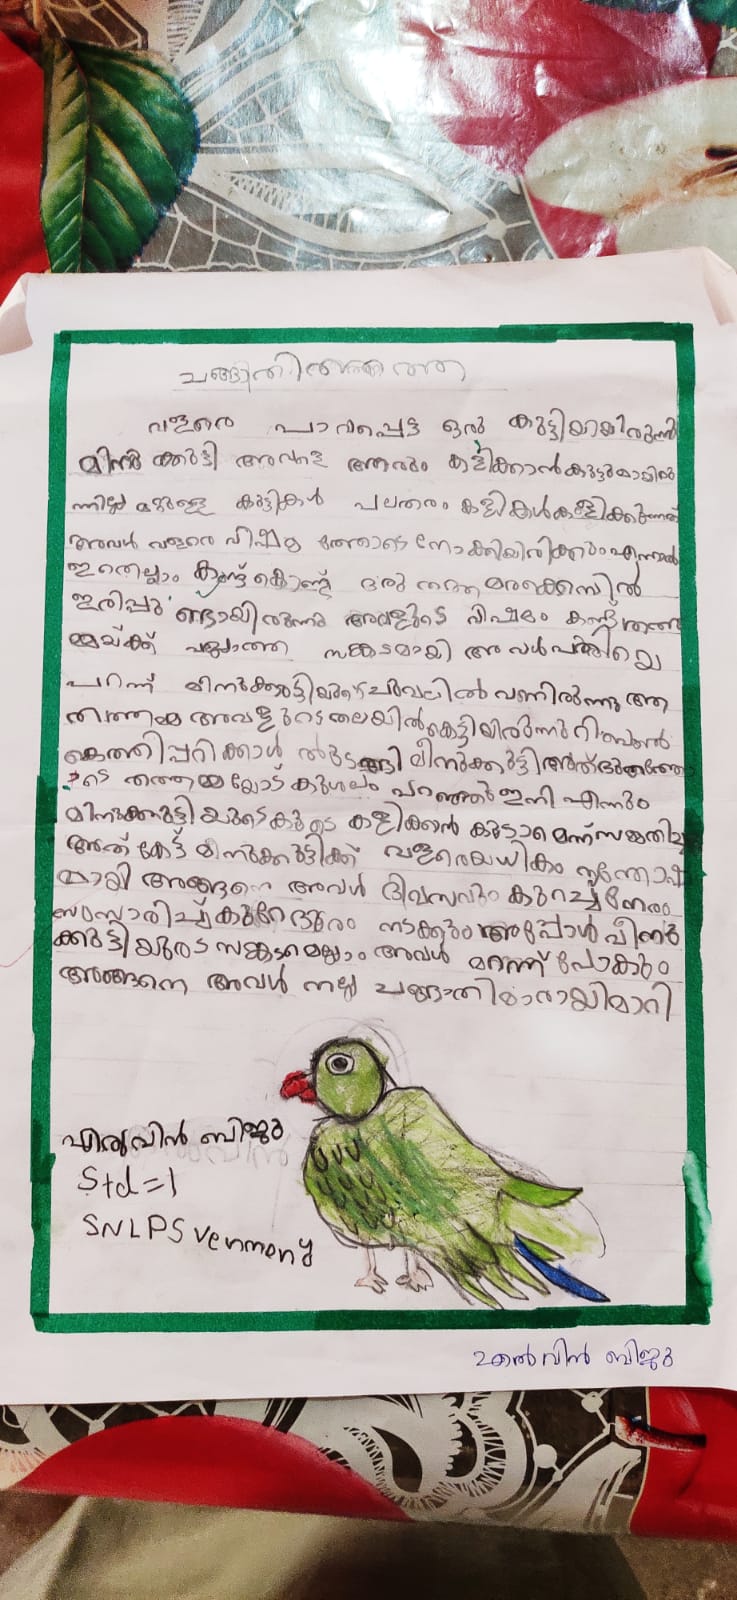 ചങ്ങാതിതത്ത
വളരെ പാവപ്പെട്ട ഒരു കുട്ടിയായിരുന്നു
മിന്നു ക്കുട്ടി അവളെ ആരും കളിക്കാൻ കുട്ടുമായിരു
ന്നില്ല മറ്റുള്ള കുട്ടികൾ പലതരം കളികൾ കളിക്കുന്നത്
അവൾ വളരെ വിഷമ ത്തോടെ നോക്കിയിരിക്കും എന്നാൽ
ഇതെല്ലാം കണ്ട് കൊണ്ട് ഒരു തത്ത മരക്കൊമ്പിൽ
ഇരിപ്പു ണ്ടായിരുന്നു അവളുടെ വിഷമം കണ്ട് തത്ത
മ്മയ്ക്ക് വല്ലാത്ത സങ്കടമായി അവൾ പതിയെ
പറന്ന് മിനുക്കുട്ടിയുടെ ചുവലിൽ വണിരുന്നു ആ
തത്തമ്മ അവളുടെ തലയിൽ കെട്ടിയിരുന്ന റിബ്ബൺ
കൊത്തിപ്പറിക്കാൾ തുടങ്ങി മിനുക്കുട്ടി അത്ഭുതത്തോ
ടെ തത്തമ്മ യോട് കുശലം പറഞ്ഞു ഇനി എന്നും
മിനുക്കുട്ടി യുടെ കൂടെ കളിക്കാൻ കൂടാമെന്ന് സമ്മതിച്ചു
അത് കേട്ട് മിനുക്കുട്ടിക്ക് വളരെയധികം സന്തോഷ
മായി അങ്ങനെ അവൾ ദിവസവും കുറച്ച് നേരം
സംസാരിച്ച് കുറേ ദൂരം നടക്കും അപ്പോൾ മിനു
ക്കുട്ടി യുടെ സങ്കടമെല്ലാം അവൾ മറന്ന് പോകും
അങ്ങനെ അവൾ നല്ല ചങ്ങാതിമാരായി മാറി
ബിജു
Std=1
SNLPS Venmony
ബിജു